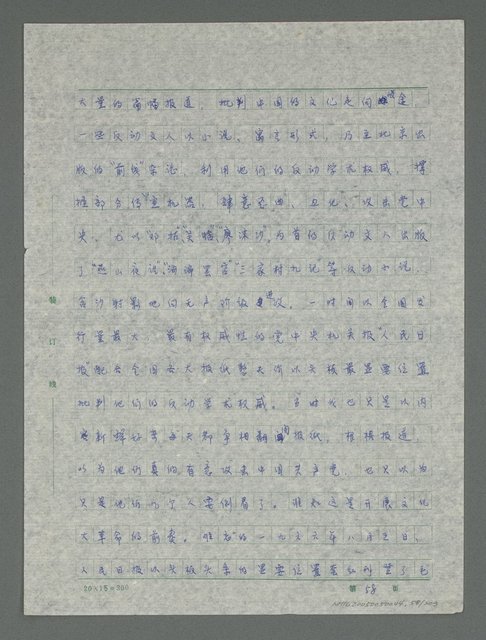 大量的篇幅报道，批判中国的文化走向歧途，
一些反动文人以小说、寓言形式，乃至北京出
版的“前线”杂志，利用他们的反动学术权威，
推部分传宣机器，肆意歪曲、丑化、以击党中
央。尤以“邓拓”、“吴晗”、“廖沫沙”为首的“反”动文人出版
了“燕山夜话”、“海瑞罢官”“三家村札记”等反动小说，
含沙射影地向无产阶级进攻。一时间以全国发
行量最大，最有权威性的党中央机关报“人民日
报”配合全国各大报纸整天价以头版最显要位置
批判他们的反动学术权威。当时我也只是以内
新鲜好奇每天都争相翻阅报纸，根据报道，
以为他们真的有意攻击中国共产党，也只以为
只是他们几个人要倒霉了。谁知这是开展文化
大革命的前奏。难忘的一九六六年八月
人民日报以头版头条的显要位置套红刊登了毛
20×15=300
第 58 页
装
订
线